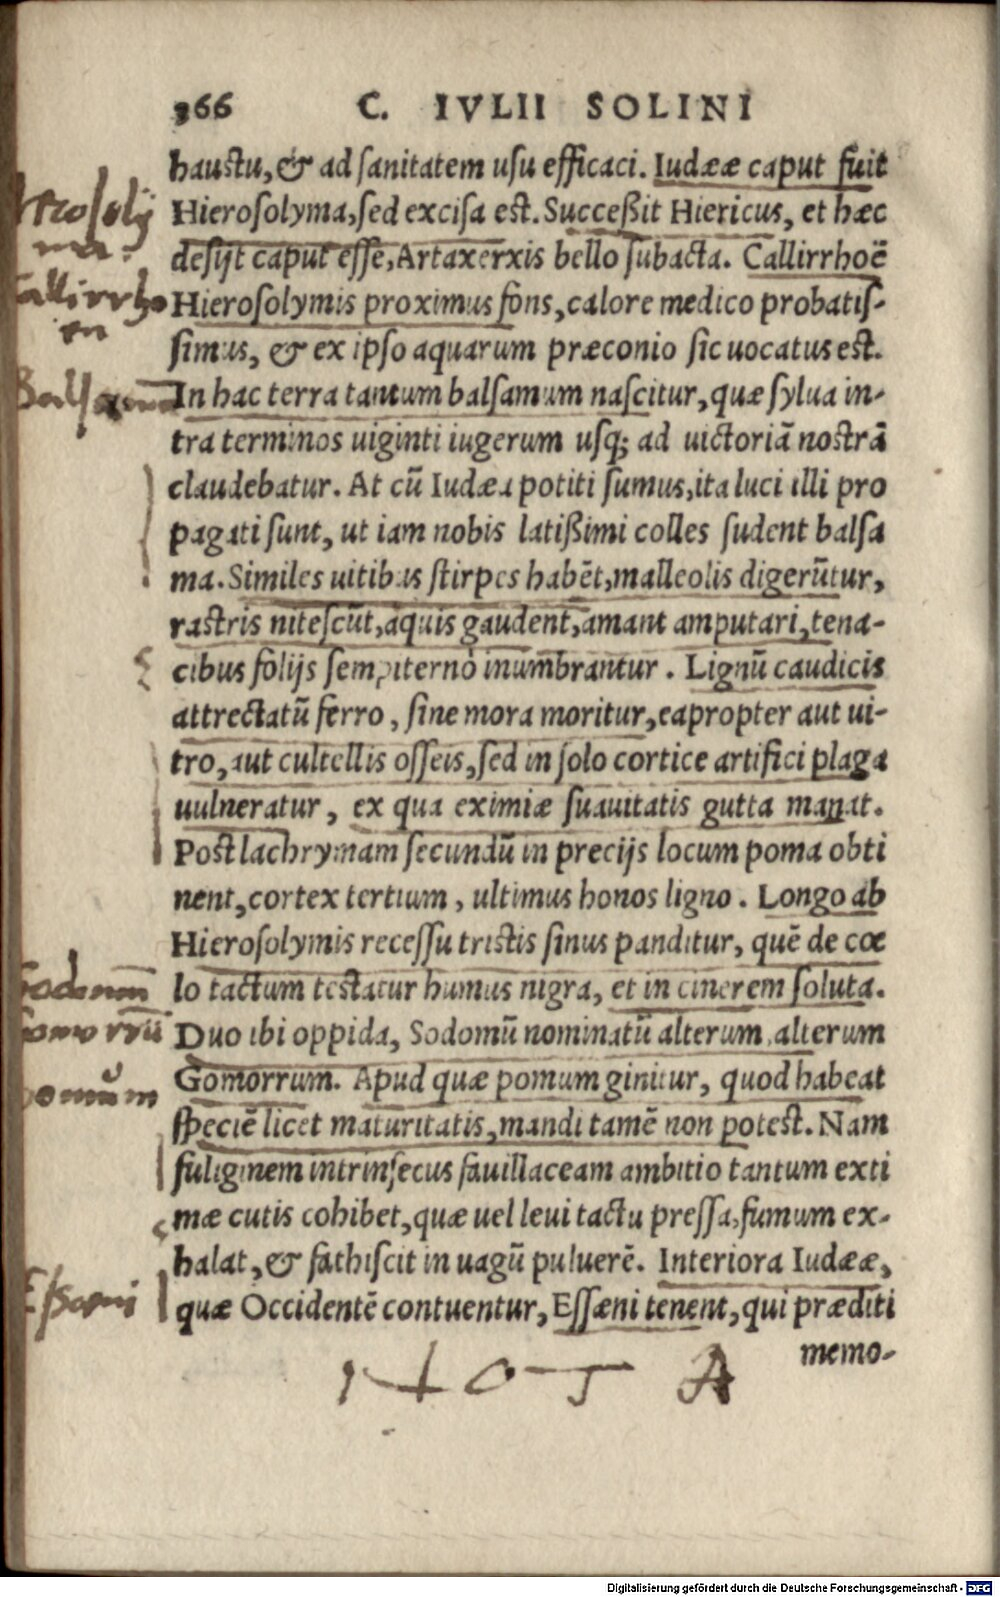 366 C. IVLII SOLINI
haustu, & ad sanitatem usu efficaci. Iudææ caput fuit
Hierosolyma, sed excisa est. Succeßit Hiericus, et hæc
desijt caput esse, Artaxerxis bello subacta. Callirrhoë
Hierosolymis proximus fons, calore medico probatis-
simus, & ex ipso aquarum præconio sic uocatus est.
In hac terra tantum balsamum nascitur, quæ sylua in-
tra terminos uiginti iugerum usq; ad uictoriã nostrã
claudebatur. At cũ Iudæa potiti sumus, ita luci illi pro
pagati sunt, ut iam nobis latißimi colles sudent balsa
ma. Similes uitibus stirpes habẽt, malleolis digerũtur,
rastris nitescũt, aquis gaudent, amant amputari, tena-
cibus folijs sempiternò inumbrantur. Lignũ caudicis
attrectatũ ferro, sine mora moritur, eapropter aut ui-
tro, aut cultellis osseis, sed in solo cortice artifici plaga
uulneratur, ex qua eximiæ suauitatis gutta manat.
Post lachrymam secundũ in precijs locum poma obti
nent, cortex tertium, ultimus honos ligno. Longo ab
Hierosolymis recessu tristis sinus panditur, quẽ de cœ
lo tactum testatur humus nigra, et in cinerem soluta.
Duo ibi oppida, Sodomũ nominatũ alterum, alterum
Gomorrum. Apud quæ pomum ginitur, quod habeat
speciẽ licet maturitatis, mandi tamẽ non potest. Nam
fuliginem intrinsecus fauillaceam ambitio tantum exti
mæ cutis cohibet, quæ uel leui tactu pressa, fumum ex-
halat, & fathiscit in uagũ puluerẽ. Interiora Iudææ,
quæ Occidentẽ contuentur, Essæni tenent, qui præditi
memo-
NOTA
Digitalisierung gefördert durch die Deutsche Forschungsgemeinschaft - DFG